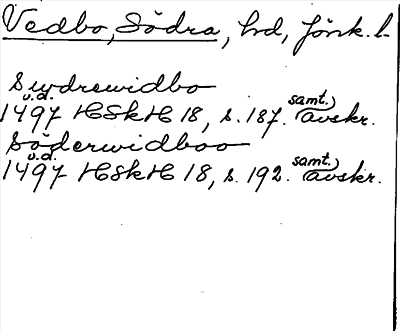 Vedbo, Södra, hd, Jönk. l.
Sudrewidbo
u.d.
1497 HSkH 18, s. 187. samt.) avskr.
Söderwidboo
u.d.
1497 HSkH 18, s. 192. samt.) avskr.